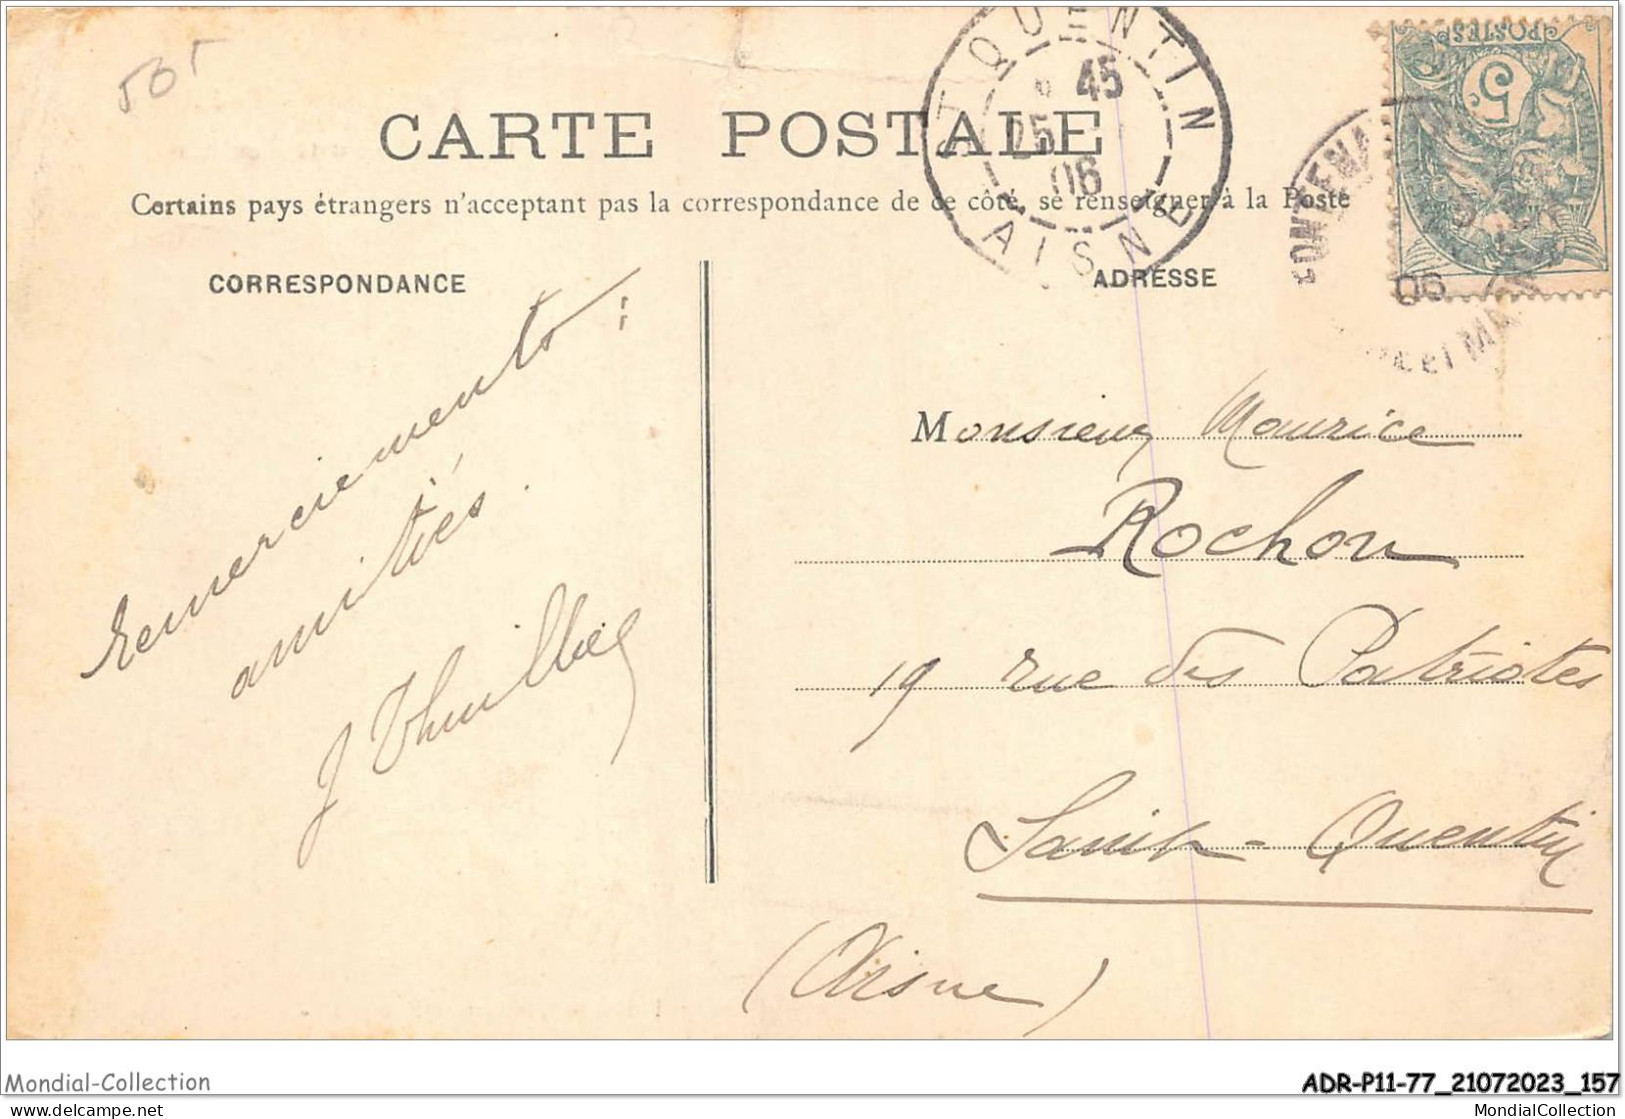 505
CARTE POSTALE
Certains pays étrangers n'acceptant pas la correspondance de ce côté, se renseigner à la Poste
CORRESPONDANCE
ADRESSE
ST QUENTIN
45
25
06
AISNE
POSTES
5
06
remerciements
amitiés.
Monsieur Maurice
Rochon
19 rue des Patriotes
Saint-Quentin
(Aisne)
Mondial-Collection
ADR-P11-77_21072023_157
www.delcampe.net
MondialCollection